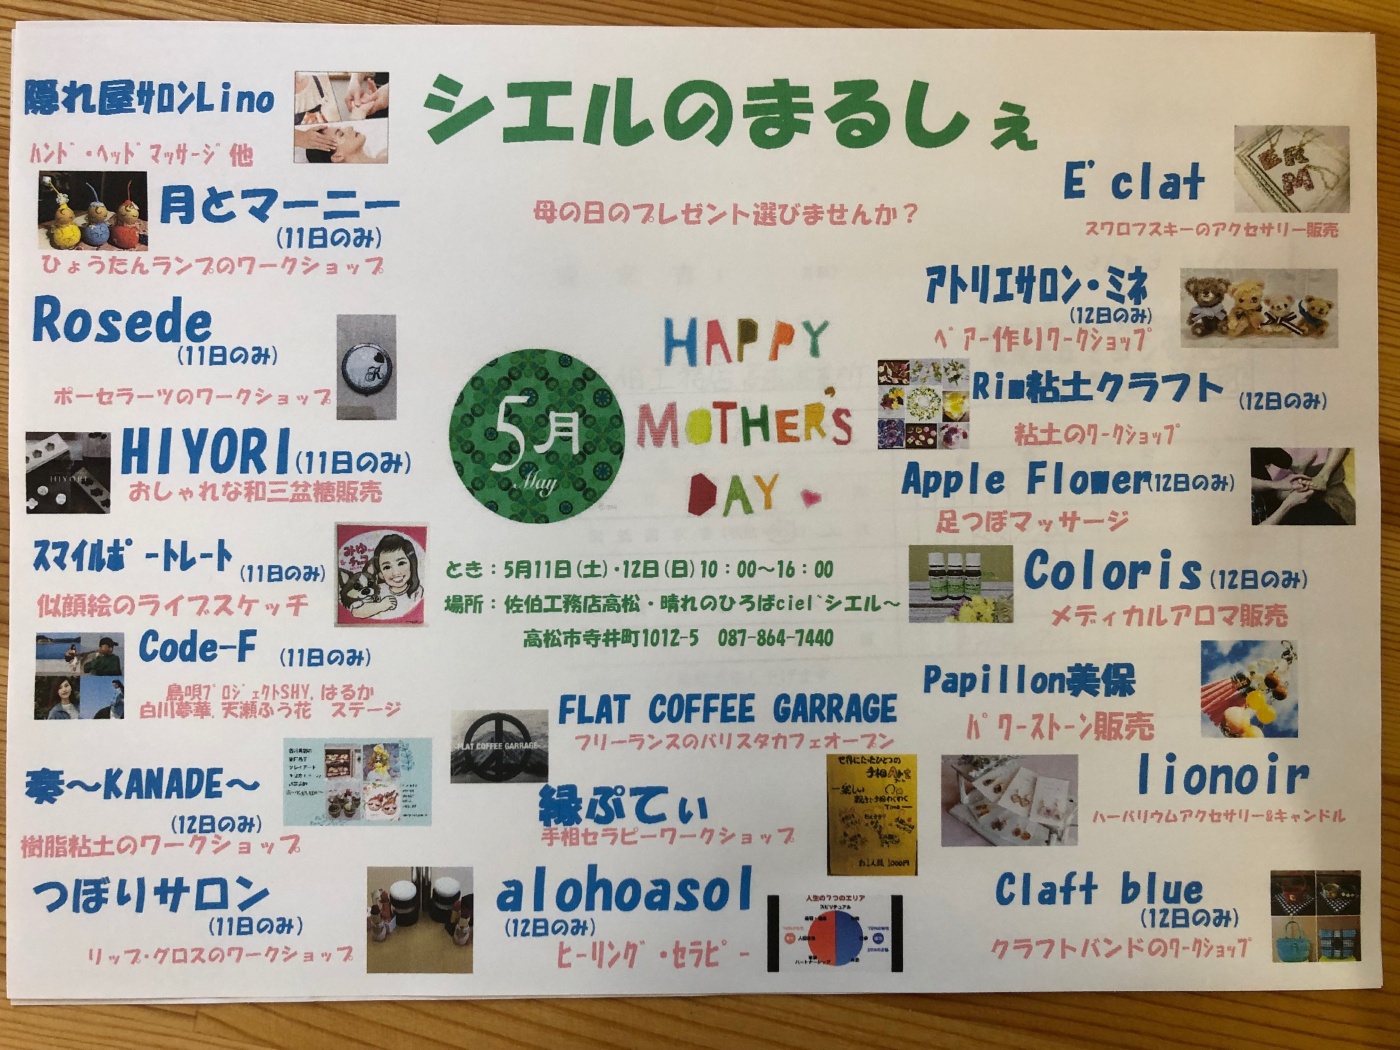 シエルのまるしぇ
母の日のプレゼント選びませんか？
隠れ屋サロンLino
ハンド・ヘッドマッサージ他
月とマーニー
(11日のみ)
ひょうたんランプのワークショップ
Rosede
(11日のみ)
ポーセラーツのワークショップ
HIYORI(11日のみ)
HIYORI
おしゃれな和三盆糖販売
スマイルポートレート (11日のみ)
似顔絵のライブスケッチ
Code-F (11日のみ)
島唄プロジェクトSHY, はるか
白川夢華, 天瀬ふう花 ステージ
奏～KANADE～
(12日のみ)
樹脂粘土のワークショップ
つぼりサロン
(11日のみ)
リップ・グロスのワークショップ
5月
May
HAPPY
MOTHER'S
DAY
とき：5月11日(土)・12日(日)10：00～16：00
場所：佐伯工務店高松・晴れのひろばciel`シエル～
高松市寺井町1012-5 087-864-7440
FLAT COFFEE GARRAGE
FLAT COFFEE GARRAGE
フリーランスのバリスタカフェオープン
縁ぷてぃ
手相セラピーワークショップ
世界にたったひとつの
alohoasol
(12日のみ)
ヒーリング・セラピー
人生の7つのエリア
スピリチュアル
E'clat
スワロフスキーのアクセサリー販売
アトリエサロン・ミネ
(12日のみ)
ベアー作りワークショップ
Rim粘土クラフト (12日のみ)
粘土のワークショップ
Apple Flower(12日のみ)
足つぼマッサージ
Coloris(12日のみ)
メディカルアロマ販売
Papillon美保
パワーストーン販売
lionoir
ハーバリウムアクセサリー&キャンドル
Claft blue
(12日のみ)
クラフトバンドのワークショップ